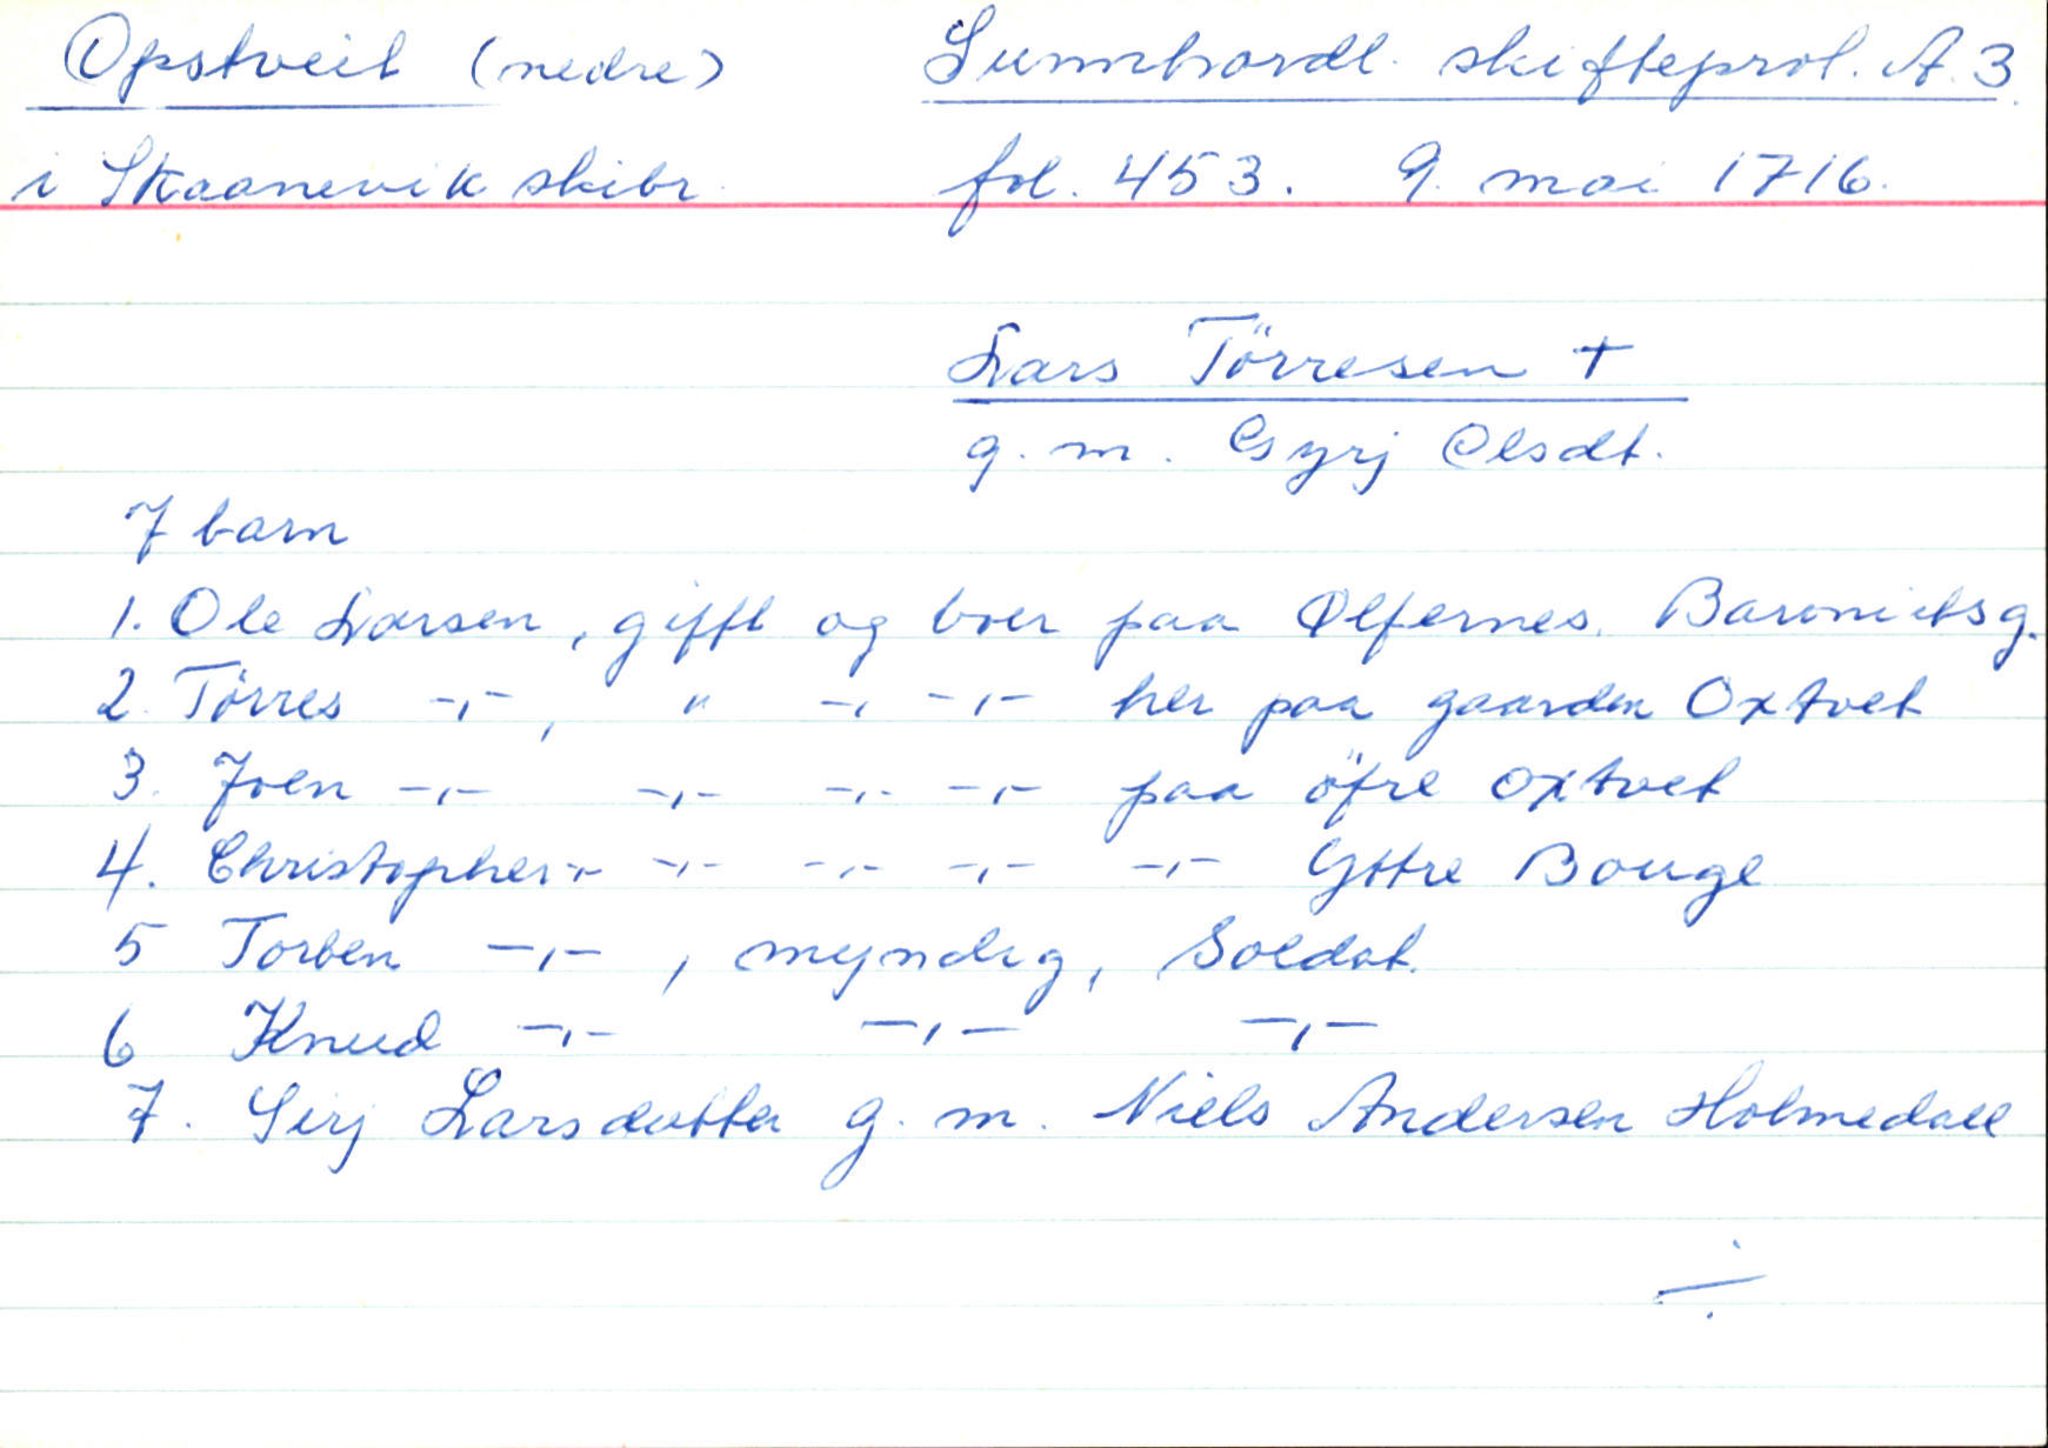 Opstveit (nedre) Sunnhordl. skifteprol. A. 3.
i Skaanevik skibr. fol. 453. 9. mai 1716.
Lars Törresen +
g. m. Gyrj Olsdt.
7 barn
1. Ole Larsen, gifft og boer paa Ølfernes. Baronietsg.
2. Törres -,-, " -,- -,- her paa gaarden Oxtvet
3. Joen -,- -,- -,- -,- paa öfre Oxtvet
4. Christopher -,- -,- -,- -,- -,- Yttre Bouge
5 Torben -,-, myndig, Soldat.
6 Knud -,- -,- -,-
7. Sirj Larsdotter g. m. Niels Andersen Holmedall